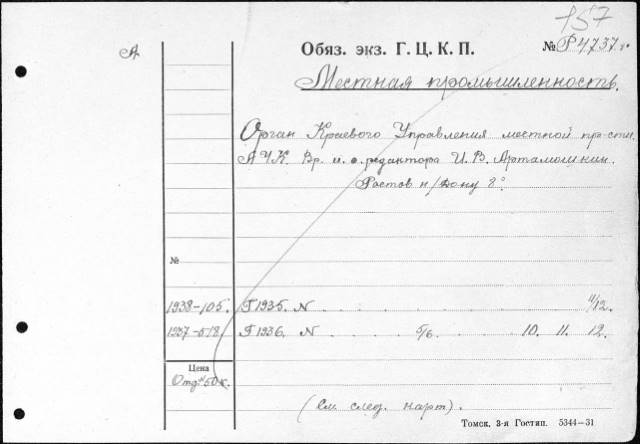 157
А
Обяз. экз. Г. Ц. К. П. № Р4737г.
Местная промышленность.
Орган Краевого Управления местной пр-сти.
АЧК. Вр. и. о. редактора И. В. Артамошкин.
Ростов н/Дону 8°.
№
1938-105. Г 1935. N 11/12.
1937-578. Г 1936. N 5/6. 10. 11. 12.
Цена
Отд. № 50 к.
(См. след. карт).
Томск, 3-я Гостип. 5344—31